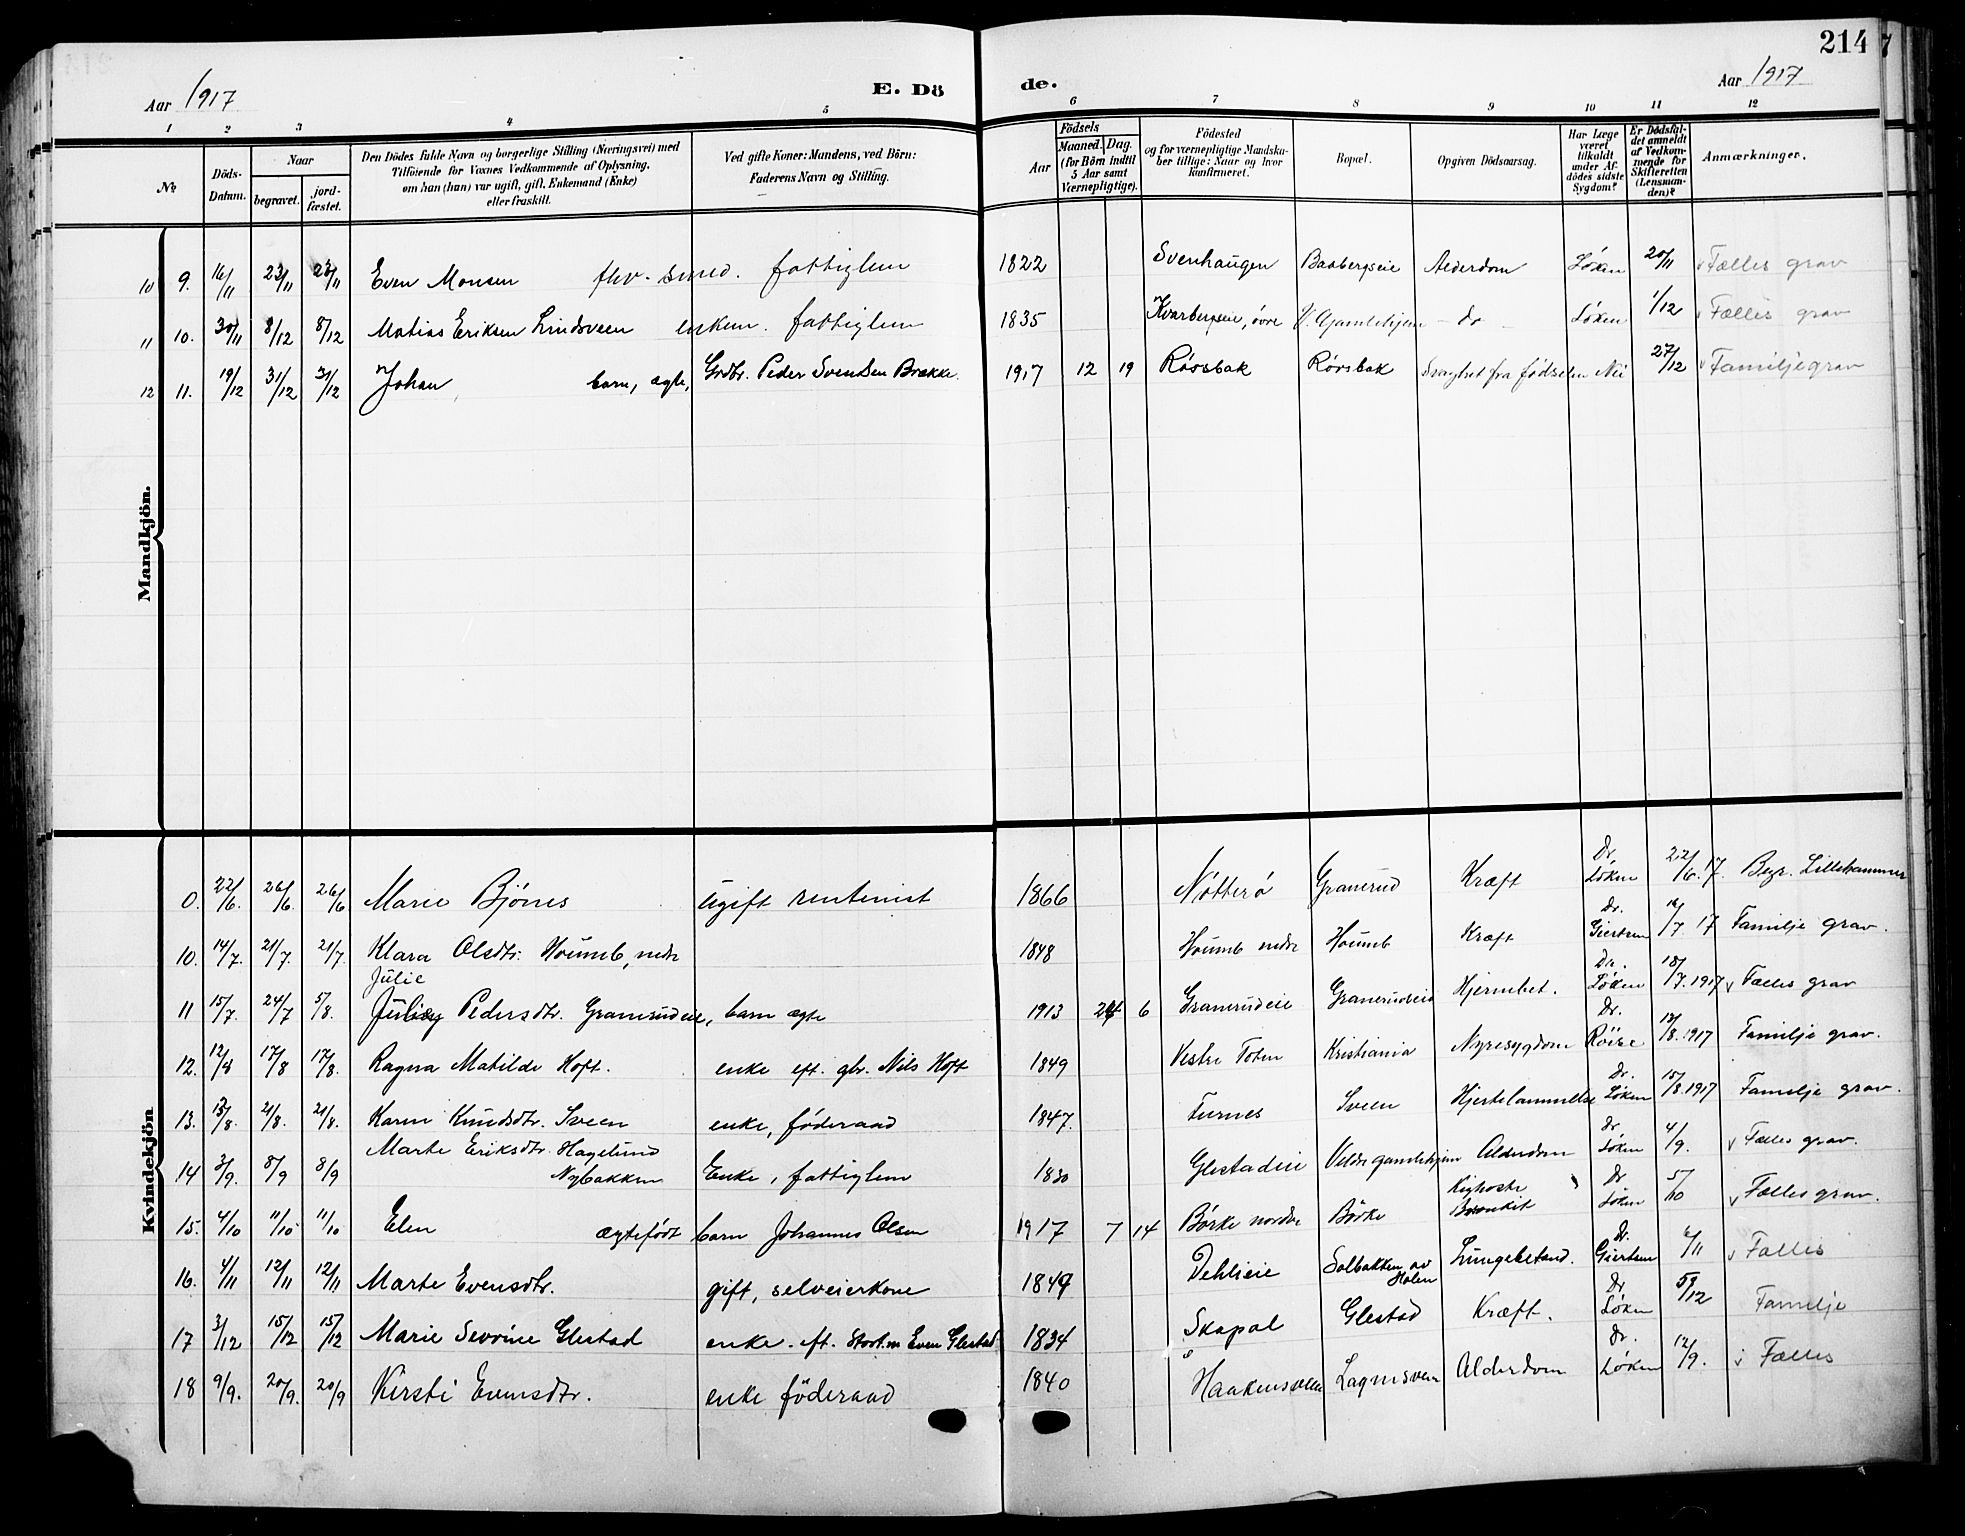 214
Aar 1917 E. Dö de. Aar 1917
1 2 3 4 5 6 7 8 9 10 11 12
No Döds-Datum. Naar begravet. jord-fæstet. Den Dödes fulde Navn og borgerlige Stilling (Næringsvei) med Tilföiende for Voxnes Vedkommende af Oplysning, om han (hun) var ugift, gift, Enkemand (Enke) eller fraskilt. Ved gifte Koner: Mandens, ved Börn: Faderens Navn og Stilling. Födsels Aar Maaned. Dag. (for Börn indtil 5 Aar samt Værnepligtige). Födested og for værnepligtige Mandskaber tillige: Naar og hvor konfirmeret. Bopæl. Opgiven Dödsaarsag. Har Læge været tilkaldt under Afdödes sidste Sygdom? Er Dödsfaldet anmeldt af Vedkommende for Skifteretten (Lensmanden)? Anmærkninger.
Mandkjön.
10 9. 16/11 23/11 23/11 Even Monsen fhv. smed. fattiglem 1822 Svenhaugen Baabergseie Alderdom Løken 20/11 Fælles grav
11 10. 30/11 8/12 8/12 Matias Eriksen Lindsveen enkem. fattiglem 1835 Kvarbergseie, övre V. Gamlehjem do Løken 1/12 Fælles grav
12 11. 19/12 31/12 31/12 Johan, barn, ægte, Grdbr. Peder Svendsen Brække. 1917 12 19 Rørsbak Rørsbak Svaghet fra fødselen Nei 27/12 Familjegrav
Kvindekjön
0. 22/6 26/6 26/6 Marie Bjönes ugift rentenist 1866 Nøtterø Granerud Kræft Dr Løken 22/6 17. Begr. Lillehammer
10. 14/7. 21/7. 21/7. Klara Olsdtr. Houmb, nedr 1848 Houmb nedre Houmb Kræft Dr. Giertsen 16/7. 17 Familje grav.
Julie
11 15/7. 24/7 5/8. Pedersdtr. Granerudeie, barn ægte 1913 6 Granerudeie Granerudeie Hjernebet. Dr. Løken 18/7. 1917 Fælles grav
12. 12/8 17/8 17/8. Ragna Matilde Hoft. enke eft. gbr. Nils Hoft 1849 Vestre Toten Kristiania Nyresygdom Dr. Röise 13/8. 1917 Familje grav.
13. 13/8. 21/8. 21/8. Karen Knudsdtr. Sveen enke, föderaad 1847. Furnes Sveen Hjertelammelse Dr. Løken 15/8. 1917 Familje grav.
14 3/9. 8/9 8/9 Marte Eriksdtr. Hagelund Nybakken Enke, fattiglem 1830 Glestadeie Veldre gamlehjem Alderdom Dr Løken 4/9. Fælles grav.
15. 4/10 11/10 11/10 Elen ægtefödt barn Johannes Olsen 1917 7 14 Börke nordre Börke Kighoste Bronkit Dr Løken 5/10 Fælles grav.
16. 4/11 12/11 12/11 Marte Evensdtr. gift, selveierkone 1849 Dehlieie Solbakken av Holen Lungebetænd. Dr. Giertsen 6/11 Fælles
17 3/12 15/12 15/12 Marie Sevrine Glestad enke. eft. Stort.m Even Glestad 1834 Skapal Glestad Kræft. Dr Løken 5/12 Familje
18 9/9. 20/9. 20/9 Kirsti Evensdtr. enke föderaad 1840 Haakensveen Lagmsveen Alderdom Dr. Løken 12/9. Fælles